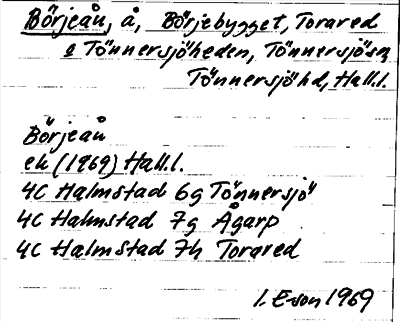 Börjeån, å, Börjebygget, Torared
å Tönnersjöheden, Tönnersjö sn,
Tönnersjö hd, Hall.l.
Börjeån
ek (1969) Hall.l.
4C Halmstad 6g Tönnersjö
4C Halmstad 7g Ågarp
4C Halmstad 7h Torared
I. E-son 1969